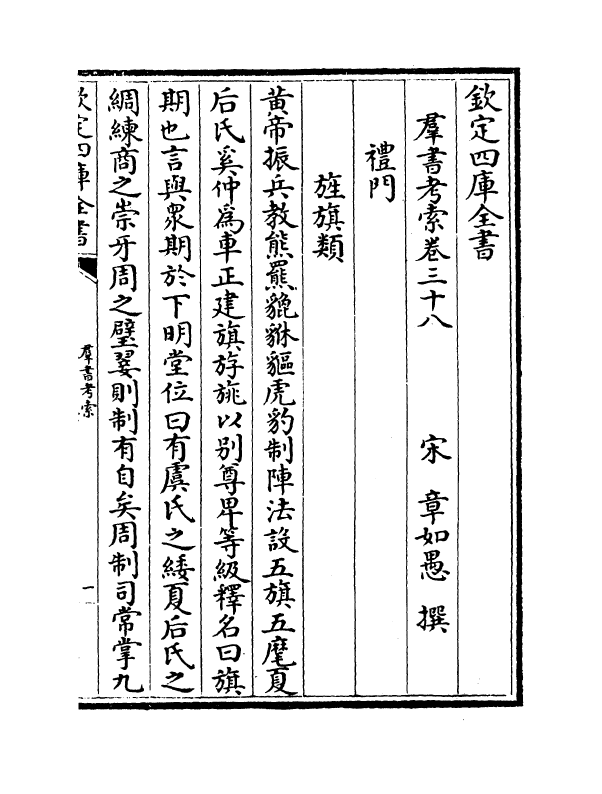 欽定四庫全書
羣書考索卷三十八
宋 章如愚 撰
禮門
旌旗類
黃帝振兵教熊羆貔貅貙虎豹制陣法設五旗五麾夏
后氏奚仲爲車正建旗斿旐以别尊卑等級釋名曰旗
期也言與衆期於下明堂位曰有虞氏之緌夏后氏之
綢練商之崇牙周之璧翣則制有自矣周制司常掌九
欽定四庫全書
羣書考索
一